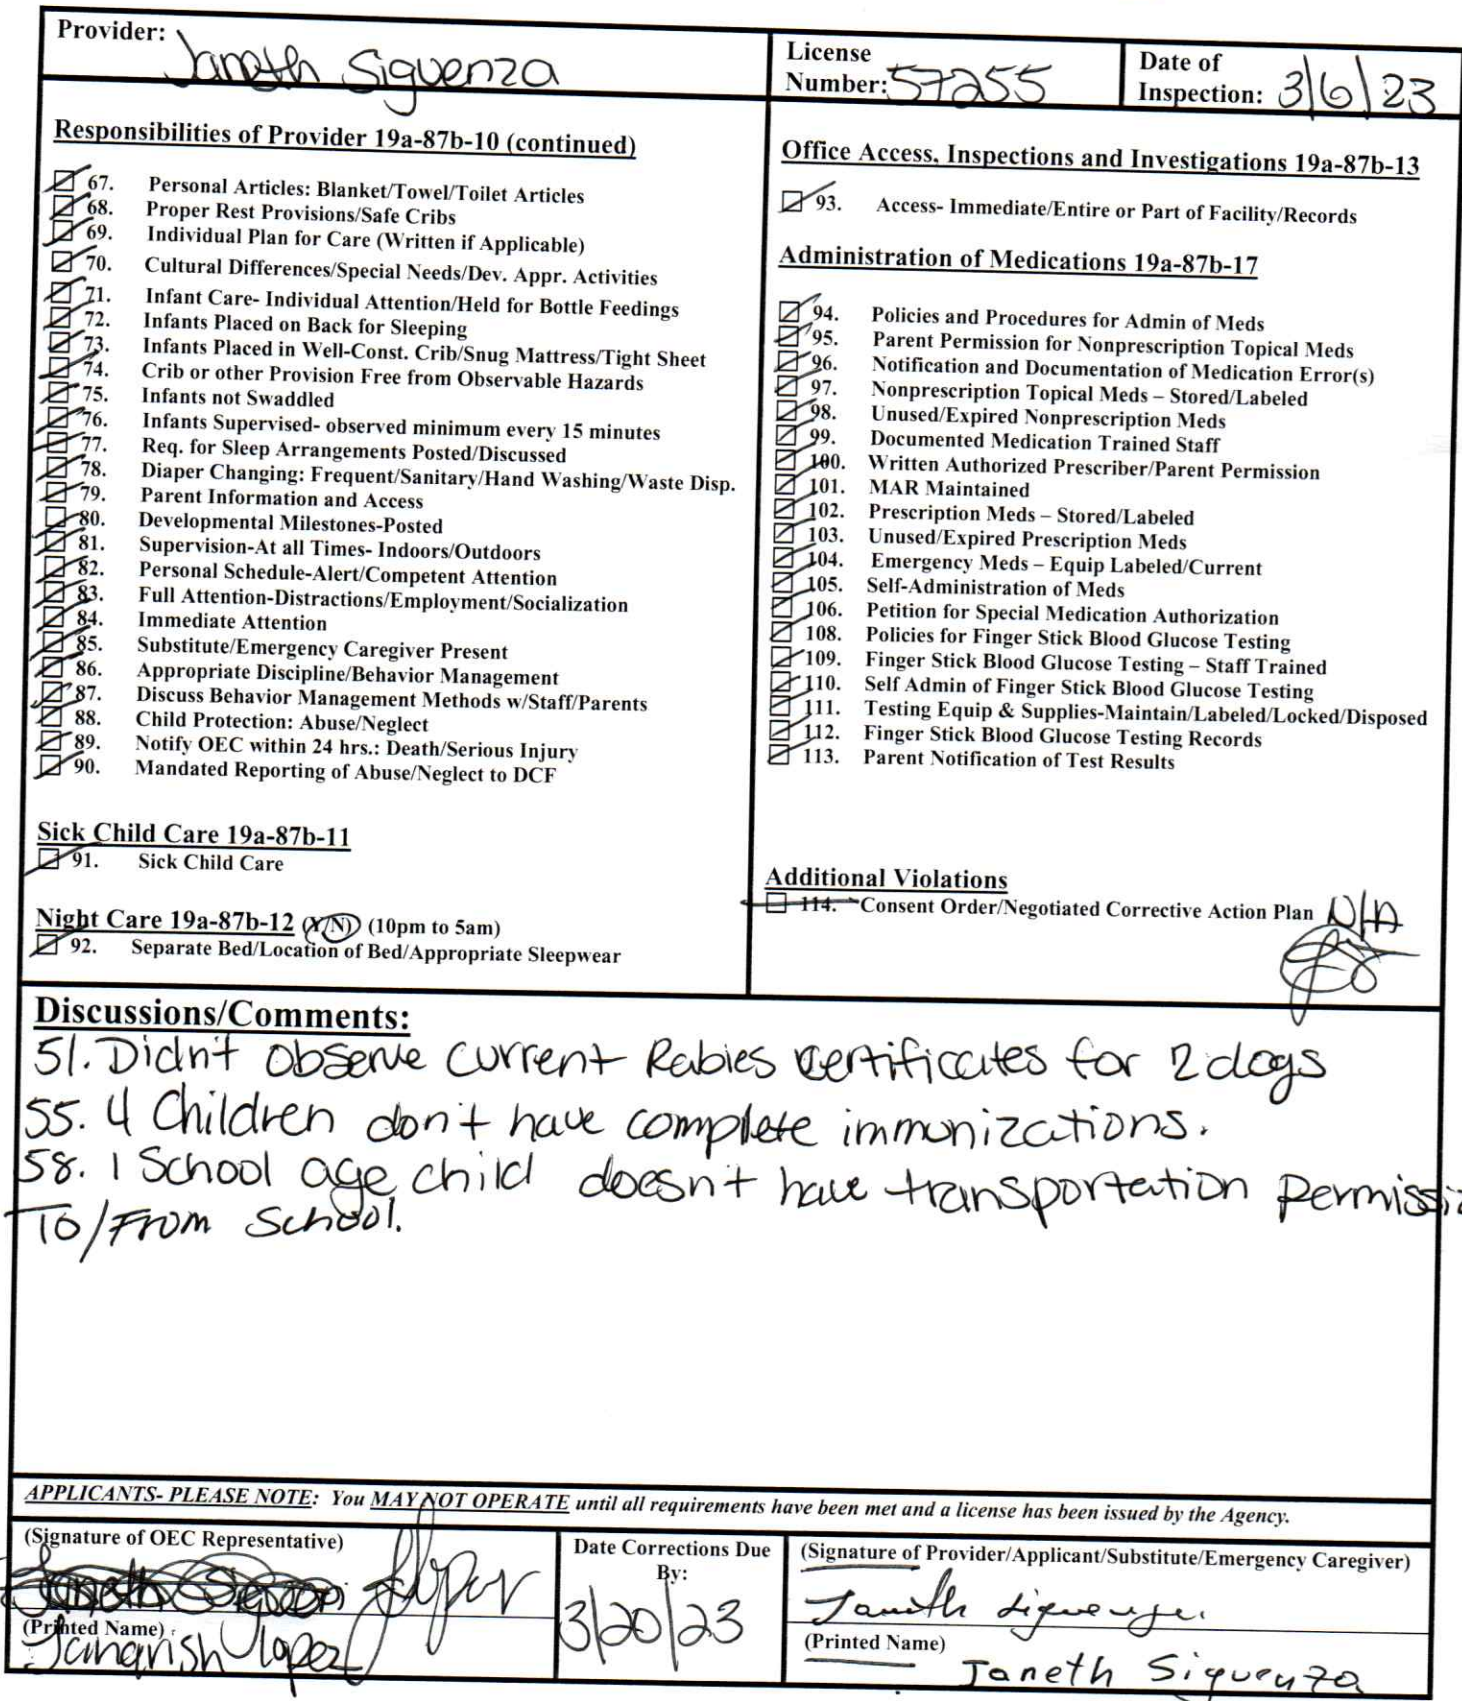 Provider: Janeth Siguenza
License Number: 57255
Date of Inspection: 3/6/23
Responsibilities of Provider 19a-87b-10 (continued)
67. Personal Articles: Blanket/Towel/Toilet Articles
68. Proper Rest Provisions/Safe Cribs
69. Individual Plan for Care (Written if Applicable)
70. Cultural Differences/Special Needs/Dev. Appr. Activities
71. Infant Care- Individual Attention/Held for Bottle Feedings
72. Infants Placed on Back for Sleeping
73. Infants Placed in Well-Const. Crib/Snug Mattress/Tight Sheet
74. Crib or other Provision Free from Observable Hazards
75. Infants not Swaddled
76. Infants Supervised- observed minimum every 15 minutes
77. Req. for Sleep Arrangements Posted/Discussed
78. Diaper Changing: Frequent/Sanitary/Hand Washing/Waste Disp.
79. Parent Information and Access
80. Developmental Milestones-Posted
81. Supervision-At all Times- Indoors/Outdoors
82. Personal Schedule-Alert/Competent Attention
83. Full Attention-Distractions/Employment/Socialization
84. Immediate Attention
85. Substitute/Emergency Caregiver Present
86. Appropriate Discipline/Behavior Management
87. Discuss Behavior Management Methods w/Staff/Parents
88. Child Protection: Abuse/Neglect
89. Notify OEC within 24 hrs.: Death/Serious Injury
90. Mandated Reporting of Abuse/Neglect to DCF
Sick Child Care 19a-87b-11
91. Sick Child Care
Night Care 19a-87b-12 (Y/N) (10pm to 5am)
92. Separate Bed/Location of Bed/Appropriate Sleepwear
Office Access, Inspections and Investigations 19a-87b-13
93. Access- Immediate/Entire or Part of Facility/Records
Administration of Medications 19a-87b-17
94. Policies and Procedures for Admin of Meds
95. Parent Permission for Nonprescription Topical Meds
96. Notification and Documentation of Medication Error(s)
97. Nonprescription Topical Meds – Stored/Labeled
98. Unused/Expired Nonprescription Meds
99. Documented Medication Trained Staff
100. Written Authorized Prescriber/Parent Permission
101. MAR Maintained
102. Prescription Meds – Stored/Labeled
103. Unused/Expired Prescription Meds
104. Emergency Meds – Equip Labeled/Current
105. Self-Administration of Meds
106. Petition for Special Medication Authorization
108. Policies for Finger Stick Blood Glucose Testing
109. Finger Stick Blood Glucose Testing – Staff Trained
110. Self Admin of Finger Stick Blood Glucose Testing
111. Testing Equip & Supplies-Maintain/Labeled/Locked/Disposed
112. Finger Stick Blood Glucose Testing Records
113. Parent Notification of Test Results
Additional Violations
114. Consent Order/Negotiated Corrective Action Plan N/A
Discussions/Comments:
51. Didn't observe current Rabies certificates for 2 dogs
55. 4 Children don't have complete immunizations.
58. 1 School age child doesn't have transportation permissi
To/From School.
APPLICANTS- PLEASE NOTE: You MAY NOT OPERATE until all requirements have been met and a license has been issued by the Agency.
(Signature of OEC Representative)
(Printed Name)
Lopez
Date Corrections Due By:
3/20/23
(Signature of Provider/Applicant/Substitute/Emergency Caregiver)
Janeth Siguenza
(Printed Name)
Janeth Siguenza